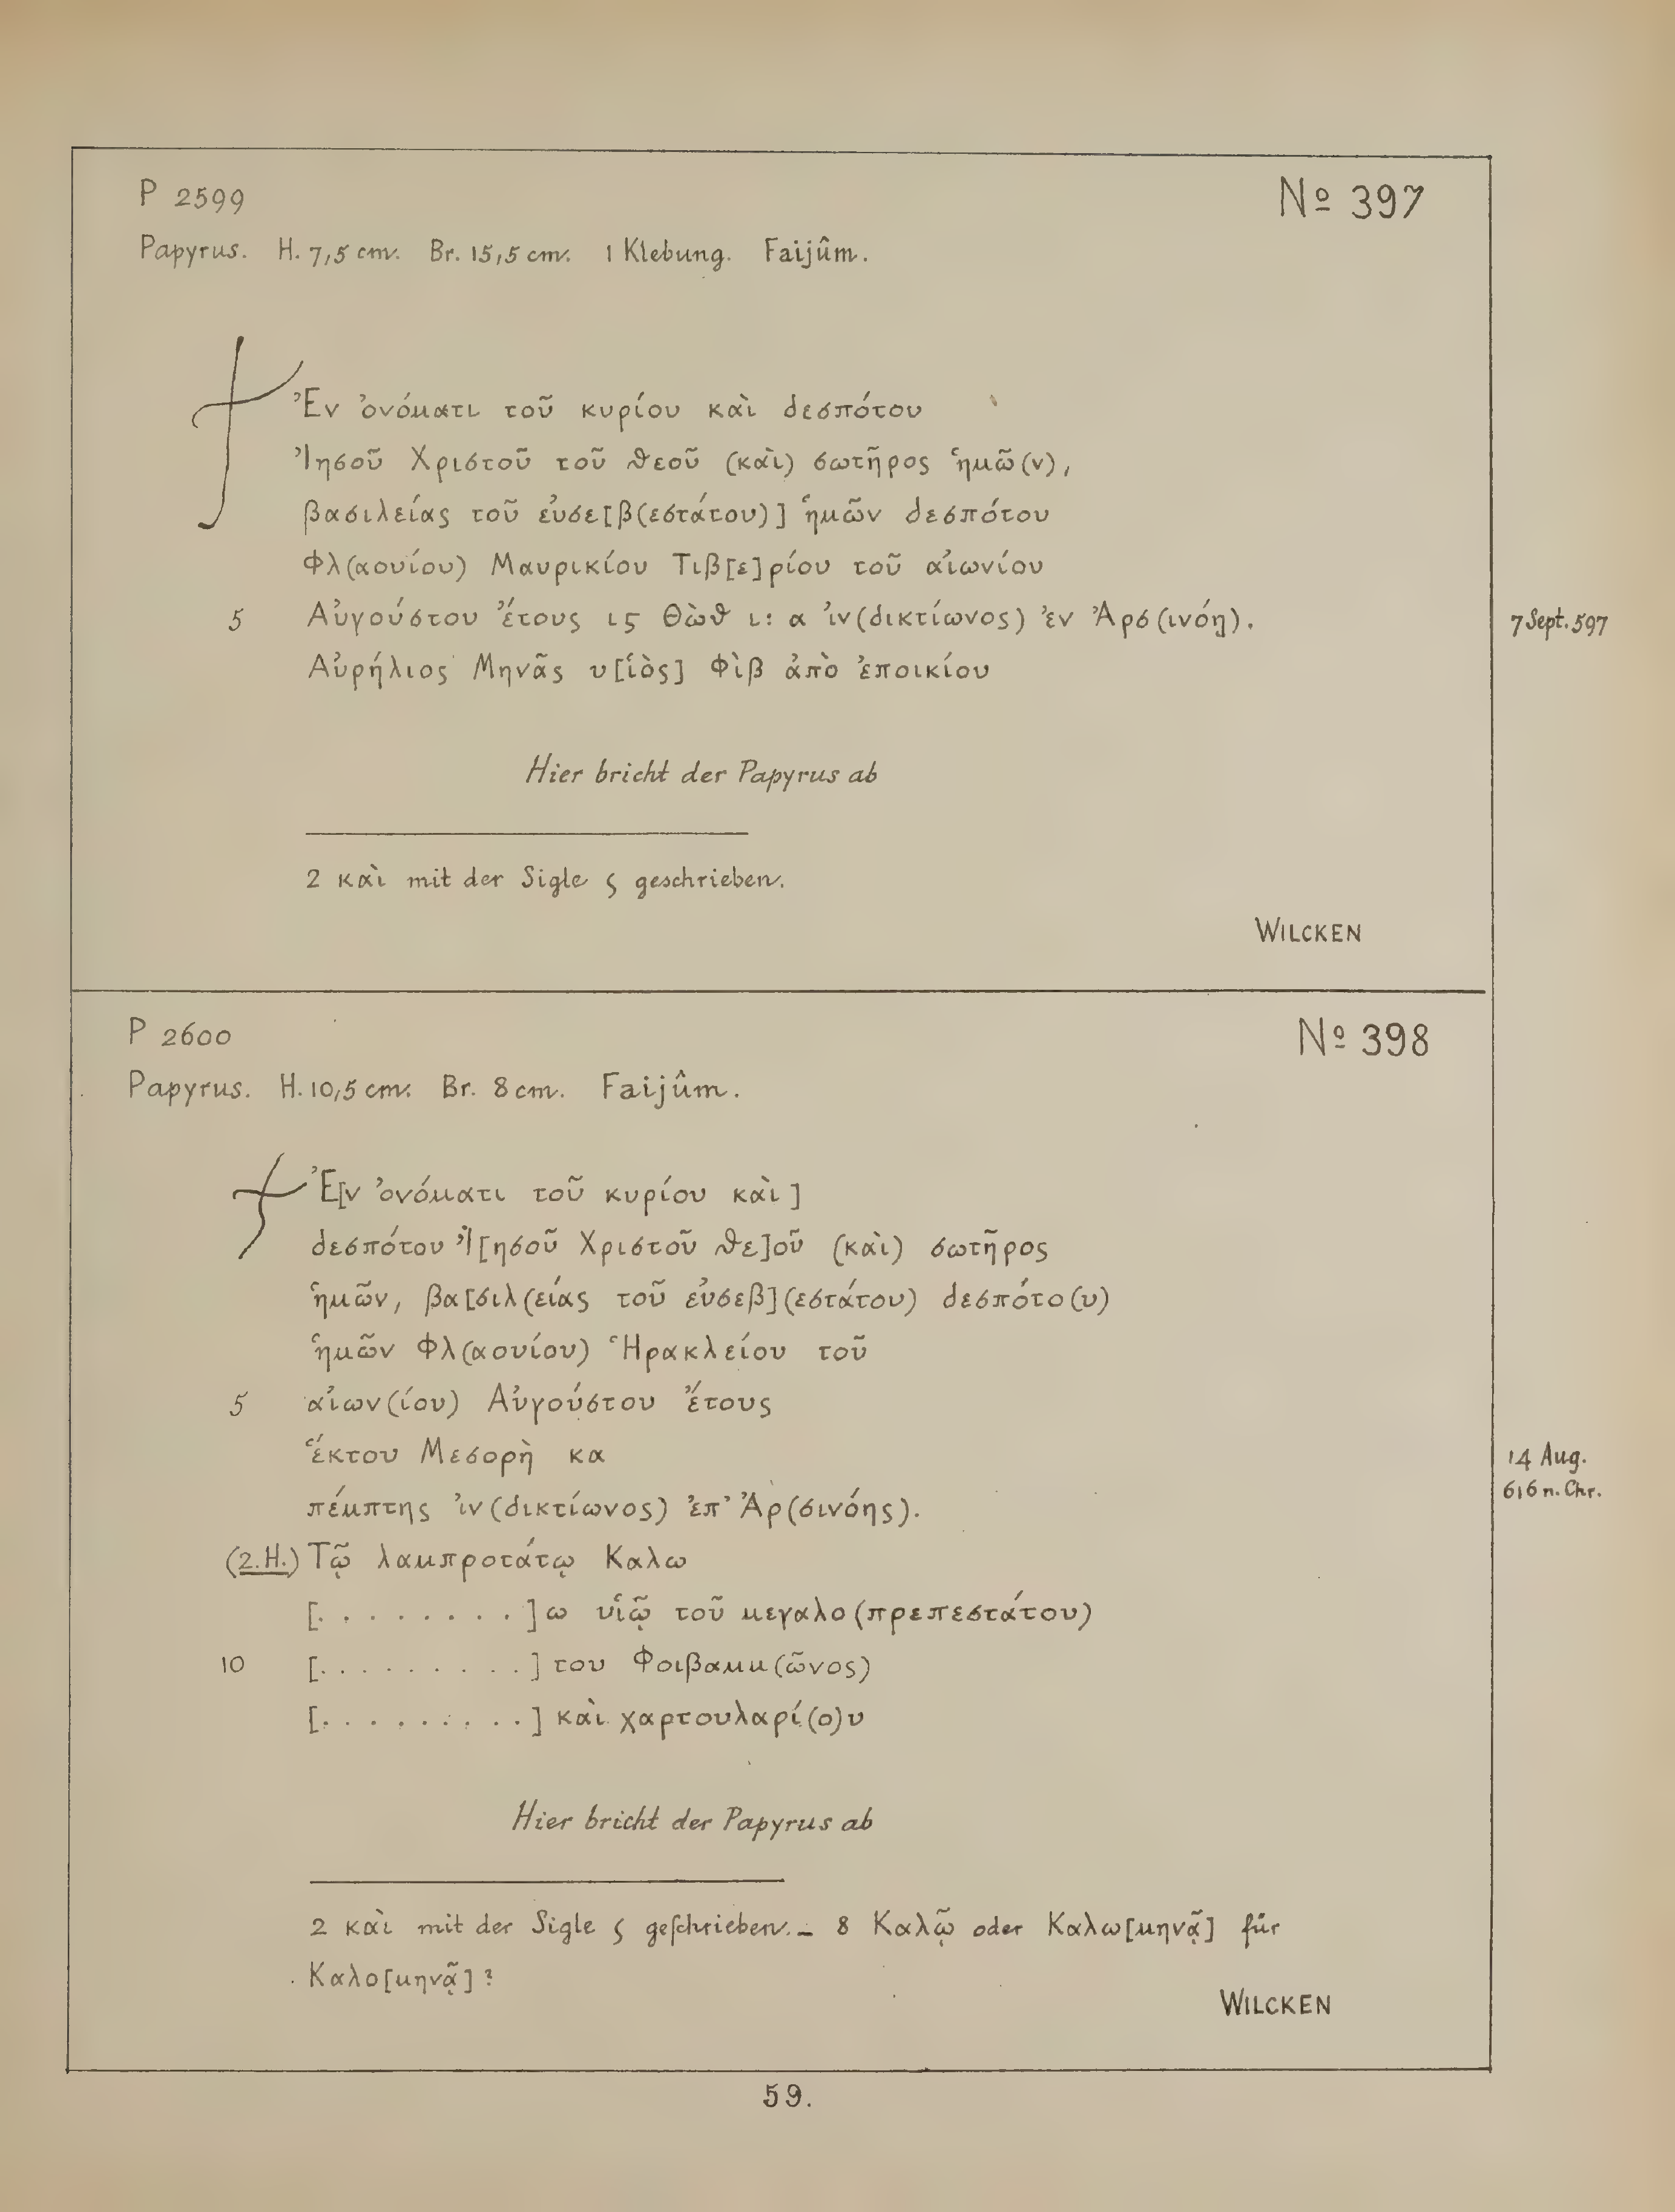 P 2599 Nº 397
Papyrus. H. 7,5 cm. Br. 15,5 cm. 1 Klebung. Faijûm.
Ἐν ὀνόματι τοῦ κυρίου καὶ δεσπότου
Ἰησοῦ Χριστοῦ τοῦ θεοῦ (καὶ) σωτῆρος ἡμῶ(ν),
βασιλείας τοῦ εὐσε[β(εστάτου)] ἡμῶν δεσπότου
Φλ(αουίου) Μαυρικίου Τιβ[ε]ρίου τοῦ αἰωνίου
5 Αὐγούστου ἔτους ις Θὼθ ι: α ἰν(δικτίωνος) ἐν Ἀρσ(ινόῃ). 7 Sept. 597
Αὐρήλιος Μηνᾶς υ[ἱὸς] Φὶβ ἀπὸ ἐποικίου
Hier bricht der Papyrus ab
2 καὶ mit der Sigle ς geschrieben.
WILCKEN
P 2600 Nº 398
Papyrus. H. 10,5 cm. Br. 8 cm. Faijûm.
Ἐ[ν ὀνόματι τοῦ κυρίου καὶ]
δεσπότου Ἰ̈[ησοῦ Χριστοῦ θε]οῦ (καὶ) σωτῆρος
ἡμῶν, βα[σιλ(είας τοῦ εὐσεβ](εστάτου) δεσπότο(υ)
ἡμῶν Φλ(αουίου) Ἡρακλείου τοῦ
5 αἰων(ίου) Αὐγούστου ἔτους
ἕκτου Μεσορὴ κα 14 Aug.
616 n. Chr.
πέμπτης ἰν(δικτίωνος) ἐπ' Ἀρ(σινόης).
(2.H.) Τῷ λαμπροτάτῳ Καλω
[. . . . . . . . .]ω υἱῷ τοῦ μεγαλο(πρεπεστάτου)
10 [. . . . . . . . . .] του Φοιβαμμ(ῶνος)
[. . . . . . . . . .] καὶ χαρτουλαρί(ο)υ
Hier bricht der Papyrus ab
2 καὶ mit der Sigle ς geſchrieben. _ 8 Καλῷ oder Καλω[μηνᾷ] für
Καλο[μηνᾷ]?
WILCKEN
59.